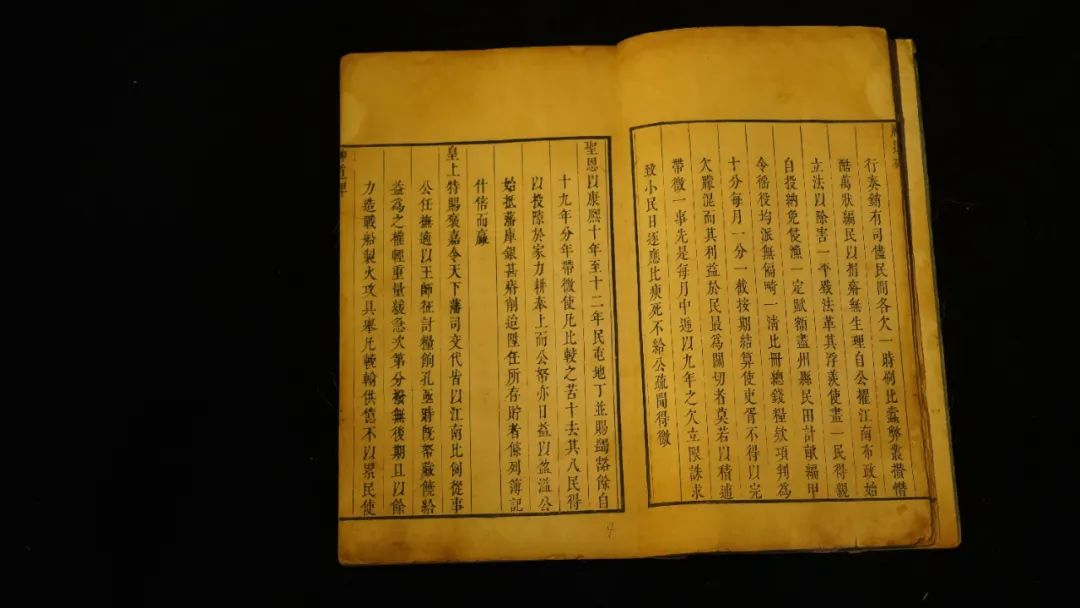 行奏銷有司儘民間各欠一時例比蠹弊叢攢憯
酷萬狀編民以相瘠無生理自公擢江南布政始
立法以除害一平發法革其浮羨使盡一民得親
自投納免侵漁一定賦額盡州縣民田計畝編甲
令徭役均派無偏畸一清比冊總錢糧欵項判為
十分每月一分一截按期結算使吏胥不得以完
欠矇混而其利益於民最為關切者莫若以積逋
帶徵一事先是每月中遞以九年之欠立限誅求
致小民日逐應比瘐死不給公疏聞得徵
聖恩以康熙十年至十二年民屯地丁並賜蠲豁餘自
十九年分年帶徵使凡比較之苦十去其八民得
以投隙於家力耕奉上而公帑亦日益以盈溢公
始抵藩庫銀甚瘠削迨陞任所存貯者條列簿記
什倍而贏
皇上特賜褒嘉令天下藩司交代皆以江南比例從事
公任撫適以王師征討糧餉孔亟時旣帑藏饒給
益為之權輕重量緩急次第分撥無後期且以餘
力造戰船製火攻具舉凡輓輸供億不以累民使
神道碑